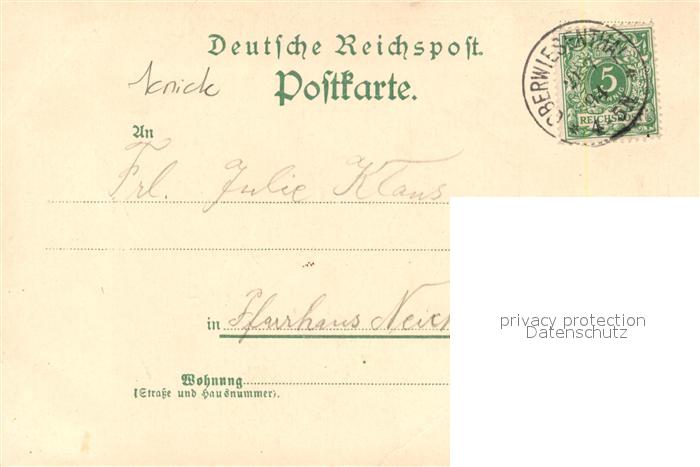 Deutsche Reichspost.
Postkarte.
Knick
OBERWIESENTHAL
5
REICHSPOST
4-5N
An
Frl. Julie Klaus
in Pfarrhaus
Wohnung
(Straße und Hausnummer).
privacy protection
Datenschutz